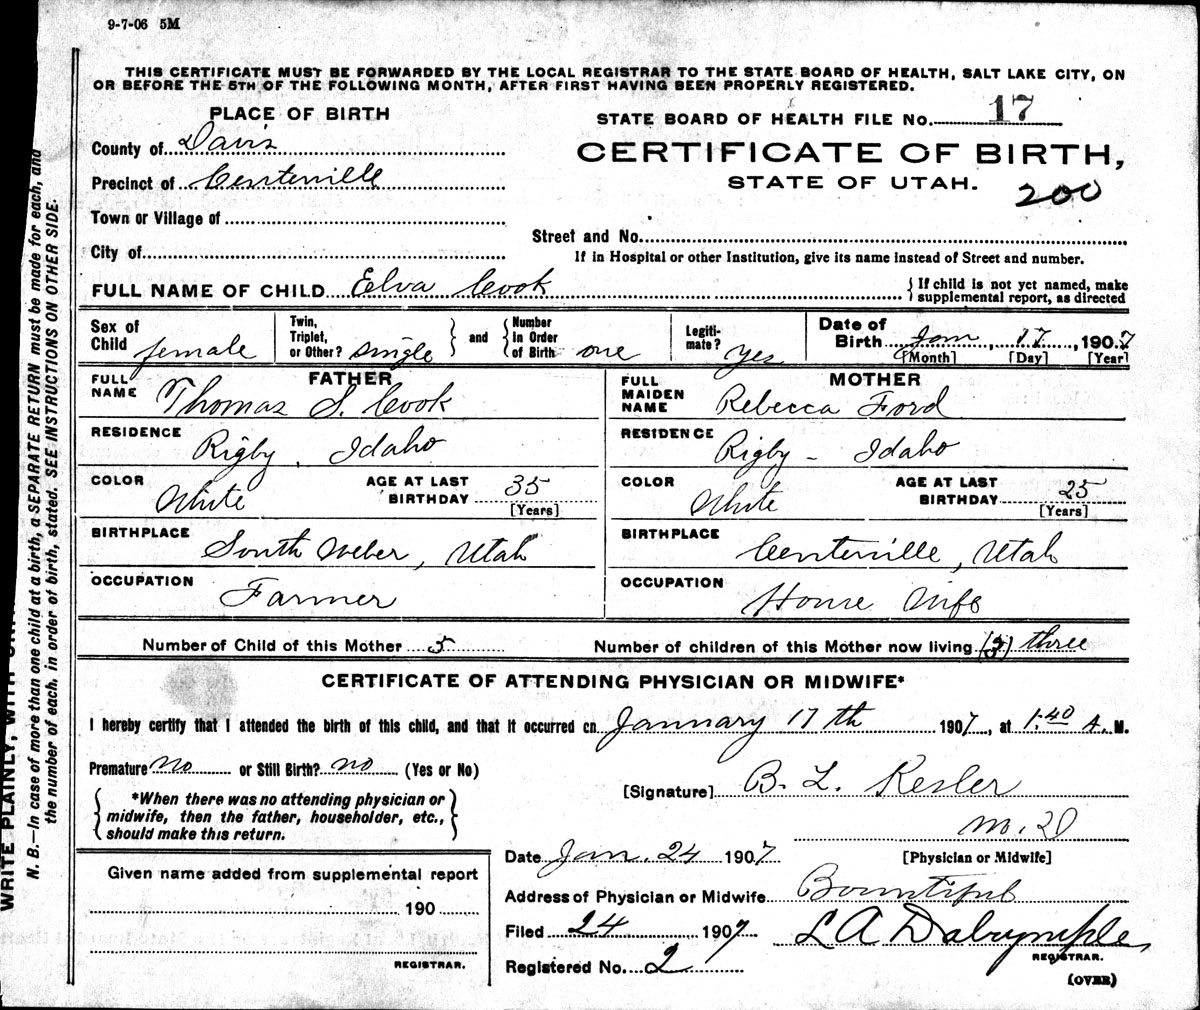 9-7-06 5M
THIS CERTIFICATE MUST BE FORWARDED BY THE LOCAL REGISTRAR TO THE STATE BOARD OF HEALTH, SALT LAKE CITY, ON
OR BEFORE THE 5TH OF THE FOLLOWING MONTH, AFTER FIRST HAVING BEEN PROPERLY REGISTERED.
PLACE OF BIRTH
STATE BOARD OF HEALTH FILE No. 17
County of Davis
CERTIFICATE OF BIRTH,
Precinct of Centerville
STATE OF UTAH.
200
Town or Village of
Street and No.
City of
If in Hospital or other Institution, give its name instead of Street and number.
FULL NAME OF CHILD Elva Cook
If child is not yet named, make
supplemental report, as directed
Sex of
Child female
Twin,
Triplet,
or Other? single
and
Number
in Order
of Birth one
Legiti-
mate? yes
Date of
Birth Jan, 17, 1907
[Month] [Day] [Year]
FATHER
FULL
NAME Thomas S. Cook
MOTHER
FULL
MAIDEN
NAME Rebecca Ford
RESIDENCE Rigby, Idaho
RESIDENCE Rigby - Idaho
COLOR White
AGE AT LAST
BIRTHDAY 35
[Years]
COLOR White
AGE AT LAST
BIRTHDAY 25
[Years]
BIRTHPLACE South Weber, Utah
BIRTHPLACE Centerville, Utah
OCCUPATION Farmer
OCCUPATION House Wife
Number of Child of this Mother 5
Number of children of this Mother now living (3) three
CERTIFICATE OF ATTENDING PHYSICIAN OR MIDWIFE*
I hereby certify that I attended the birth of this child, and that it occurred on January 17th 1907, at 1:40 A. M.
Premature no or Still Birth? no (Yes or No)
[Signature] B. L. Kesler
*When there was no attending physician or
midwife, then the father, householder, etc.,
should make this return.
M.D
[Physician or Midwife]
Date Jan. 24 1907
Given name added from supplemental report
Address of Physician or Midwife Bountiful
190
Filed 24 1907
L A Dalrymple
REGISTRAR.
REGISTRAR.
Registered No. 2
(OVER)
WRITE PLAINLY, WITH
N. B.—In case of more than one child at a birth, a SEPARATE RETURN must be made for each, and
the number of each, in order of birth, stated. SEE INSTRUCTIONS ON OTHER SIDE.